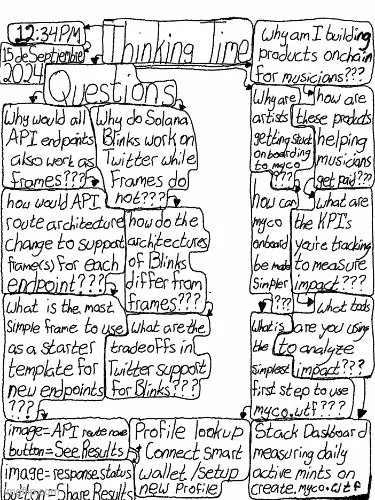 12:34PM
15 de Septiembre
2024
Thinking Time
Questions
Why would all
API endpoints
also work as
Frames???
how would API
route architecture
change to support
frame(s) for each
endpoint???
What is the most
simple frame to use
as a starter
template for
new endpoints
???
image=API route name
button=See Results
image=response status
button=Share Results
Why do Solana
Blinks work on
Twitter while
Frames do
not???
how do the
architectures
of Blinks
differ from
frames???
What are the
tradeoffs in
Twitter support
for Blinks???
Profile lookup
Connect smart
wallet /setup
new profile
Why am I building
products onchain
for musicians???
Why are
artists
getting stuck
onboarding
to myco
???
how can
myco
onboard
be made
simpler
???
What is
the
simplest
first step to use
myco.wtf???
how are
these products
helping
musicians
get paid???
what are
the KPI's
you're tracking
to measure
impact???
What tools
are you using
to analyze
impact???
Stack Dashboard
measuring daily
active mints on
create.myco.wtf